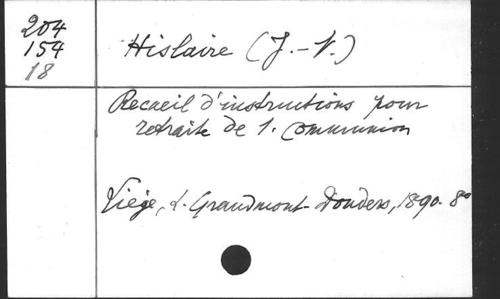 204
154
18
Hislaire (J.-N.)
Recueil d'instructions pour
retraite de 1. communion
Liége, L. Grandmont-Donders, 1890. 8°